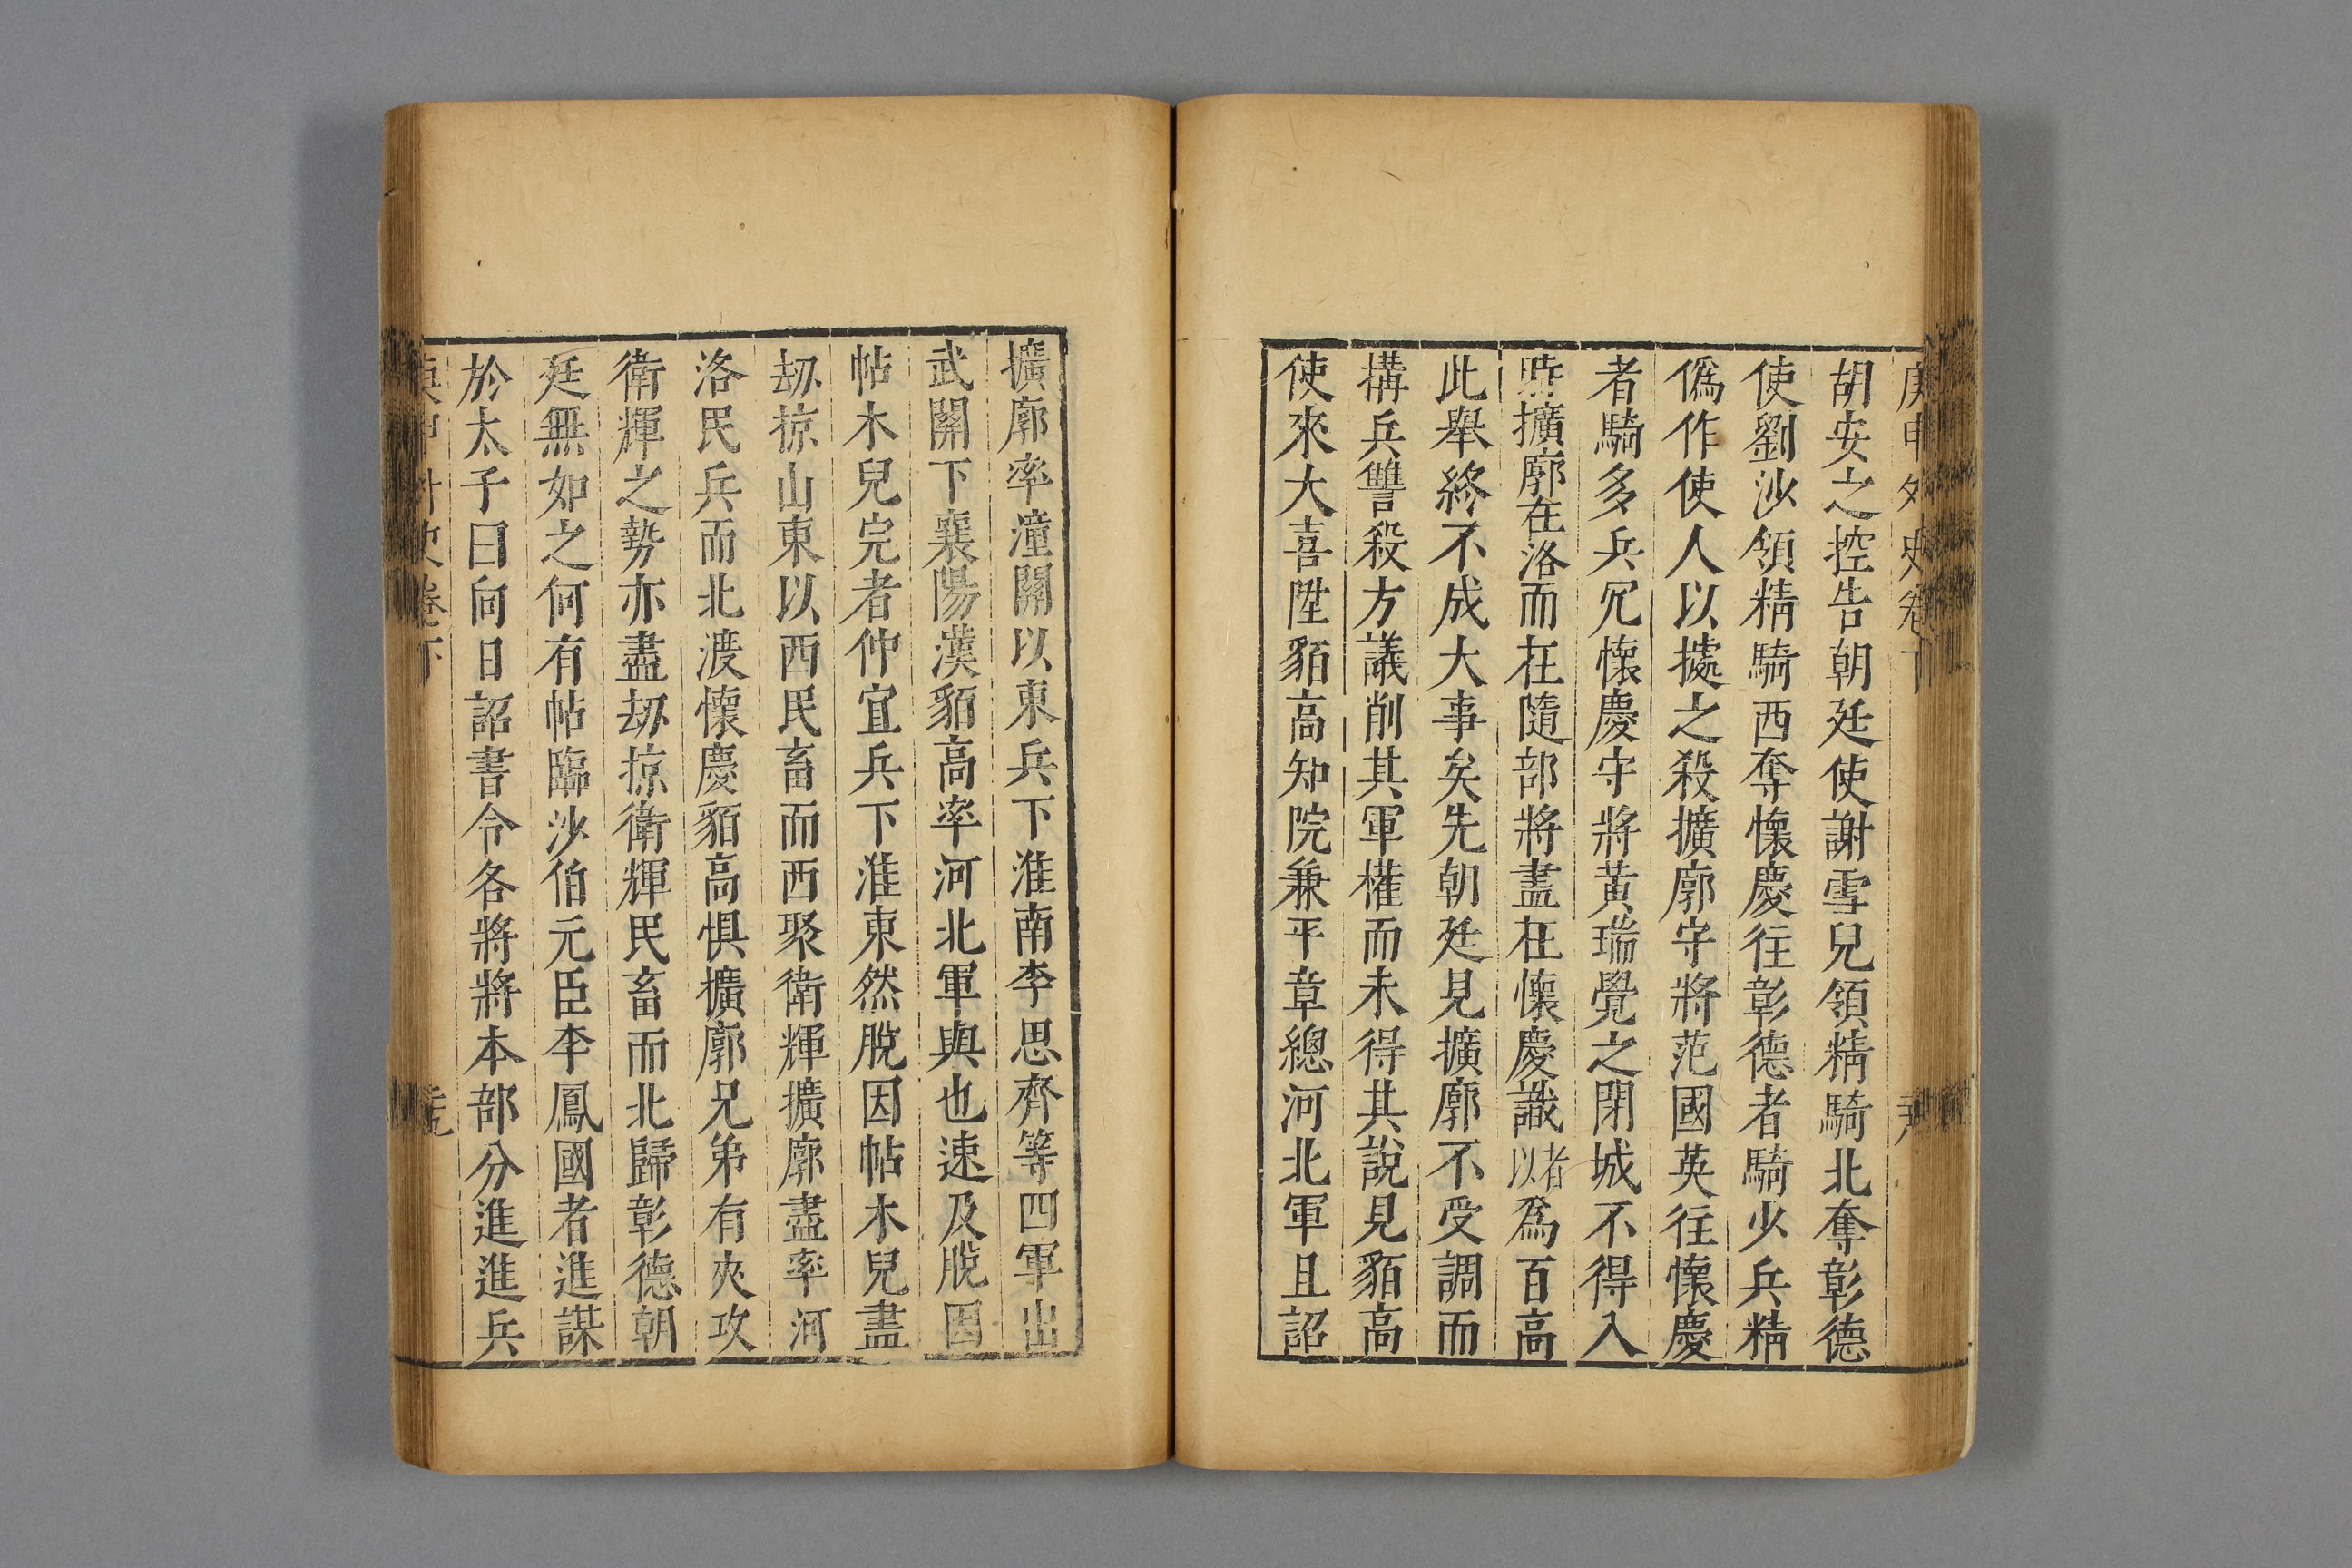 庚申外史卷下
胡安之控告朝廷使謝雪兒領精騎北奪彰德
使劉沙領精騎西奪懷慶往彰德者騎少兵精
僞作使人以據之殺擴廓守將范國英往懷慶
者騎多兵冗懷慶守將黃瑞覺之閉城不得入
時擴廓在洛而在隨部將盡在懷慶識者以爲百高
此舉終不成大事矣先朝廷見擴廓不受調而
搆兵讐殺方議削其軍權而未得其說見貊高
使來大喜陞貊高知院兼平章總河北軍且詔
擴廓率潼關以東兵下淮南李思齊等四軍出
武關下襄陽漢貊高率河北軍與也速及脫因
帖木兒完者仲宜兵下淮東然脫因帖木兒盡
刼掠山東以西民畜而西聚衛輝擴廓盡率河
洛民兵而北渡懷慶貊高惧擴廓兄弟有夾攻
衛輝之勢亦盡刼掠衛輝民畜而北歸彰德朝
廷無如之何有帖臨沙伯元臣李鳳國者進謀
於太子曰向日詔書令各將將本部分進進兵
庚申外史卷下